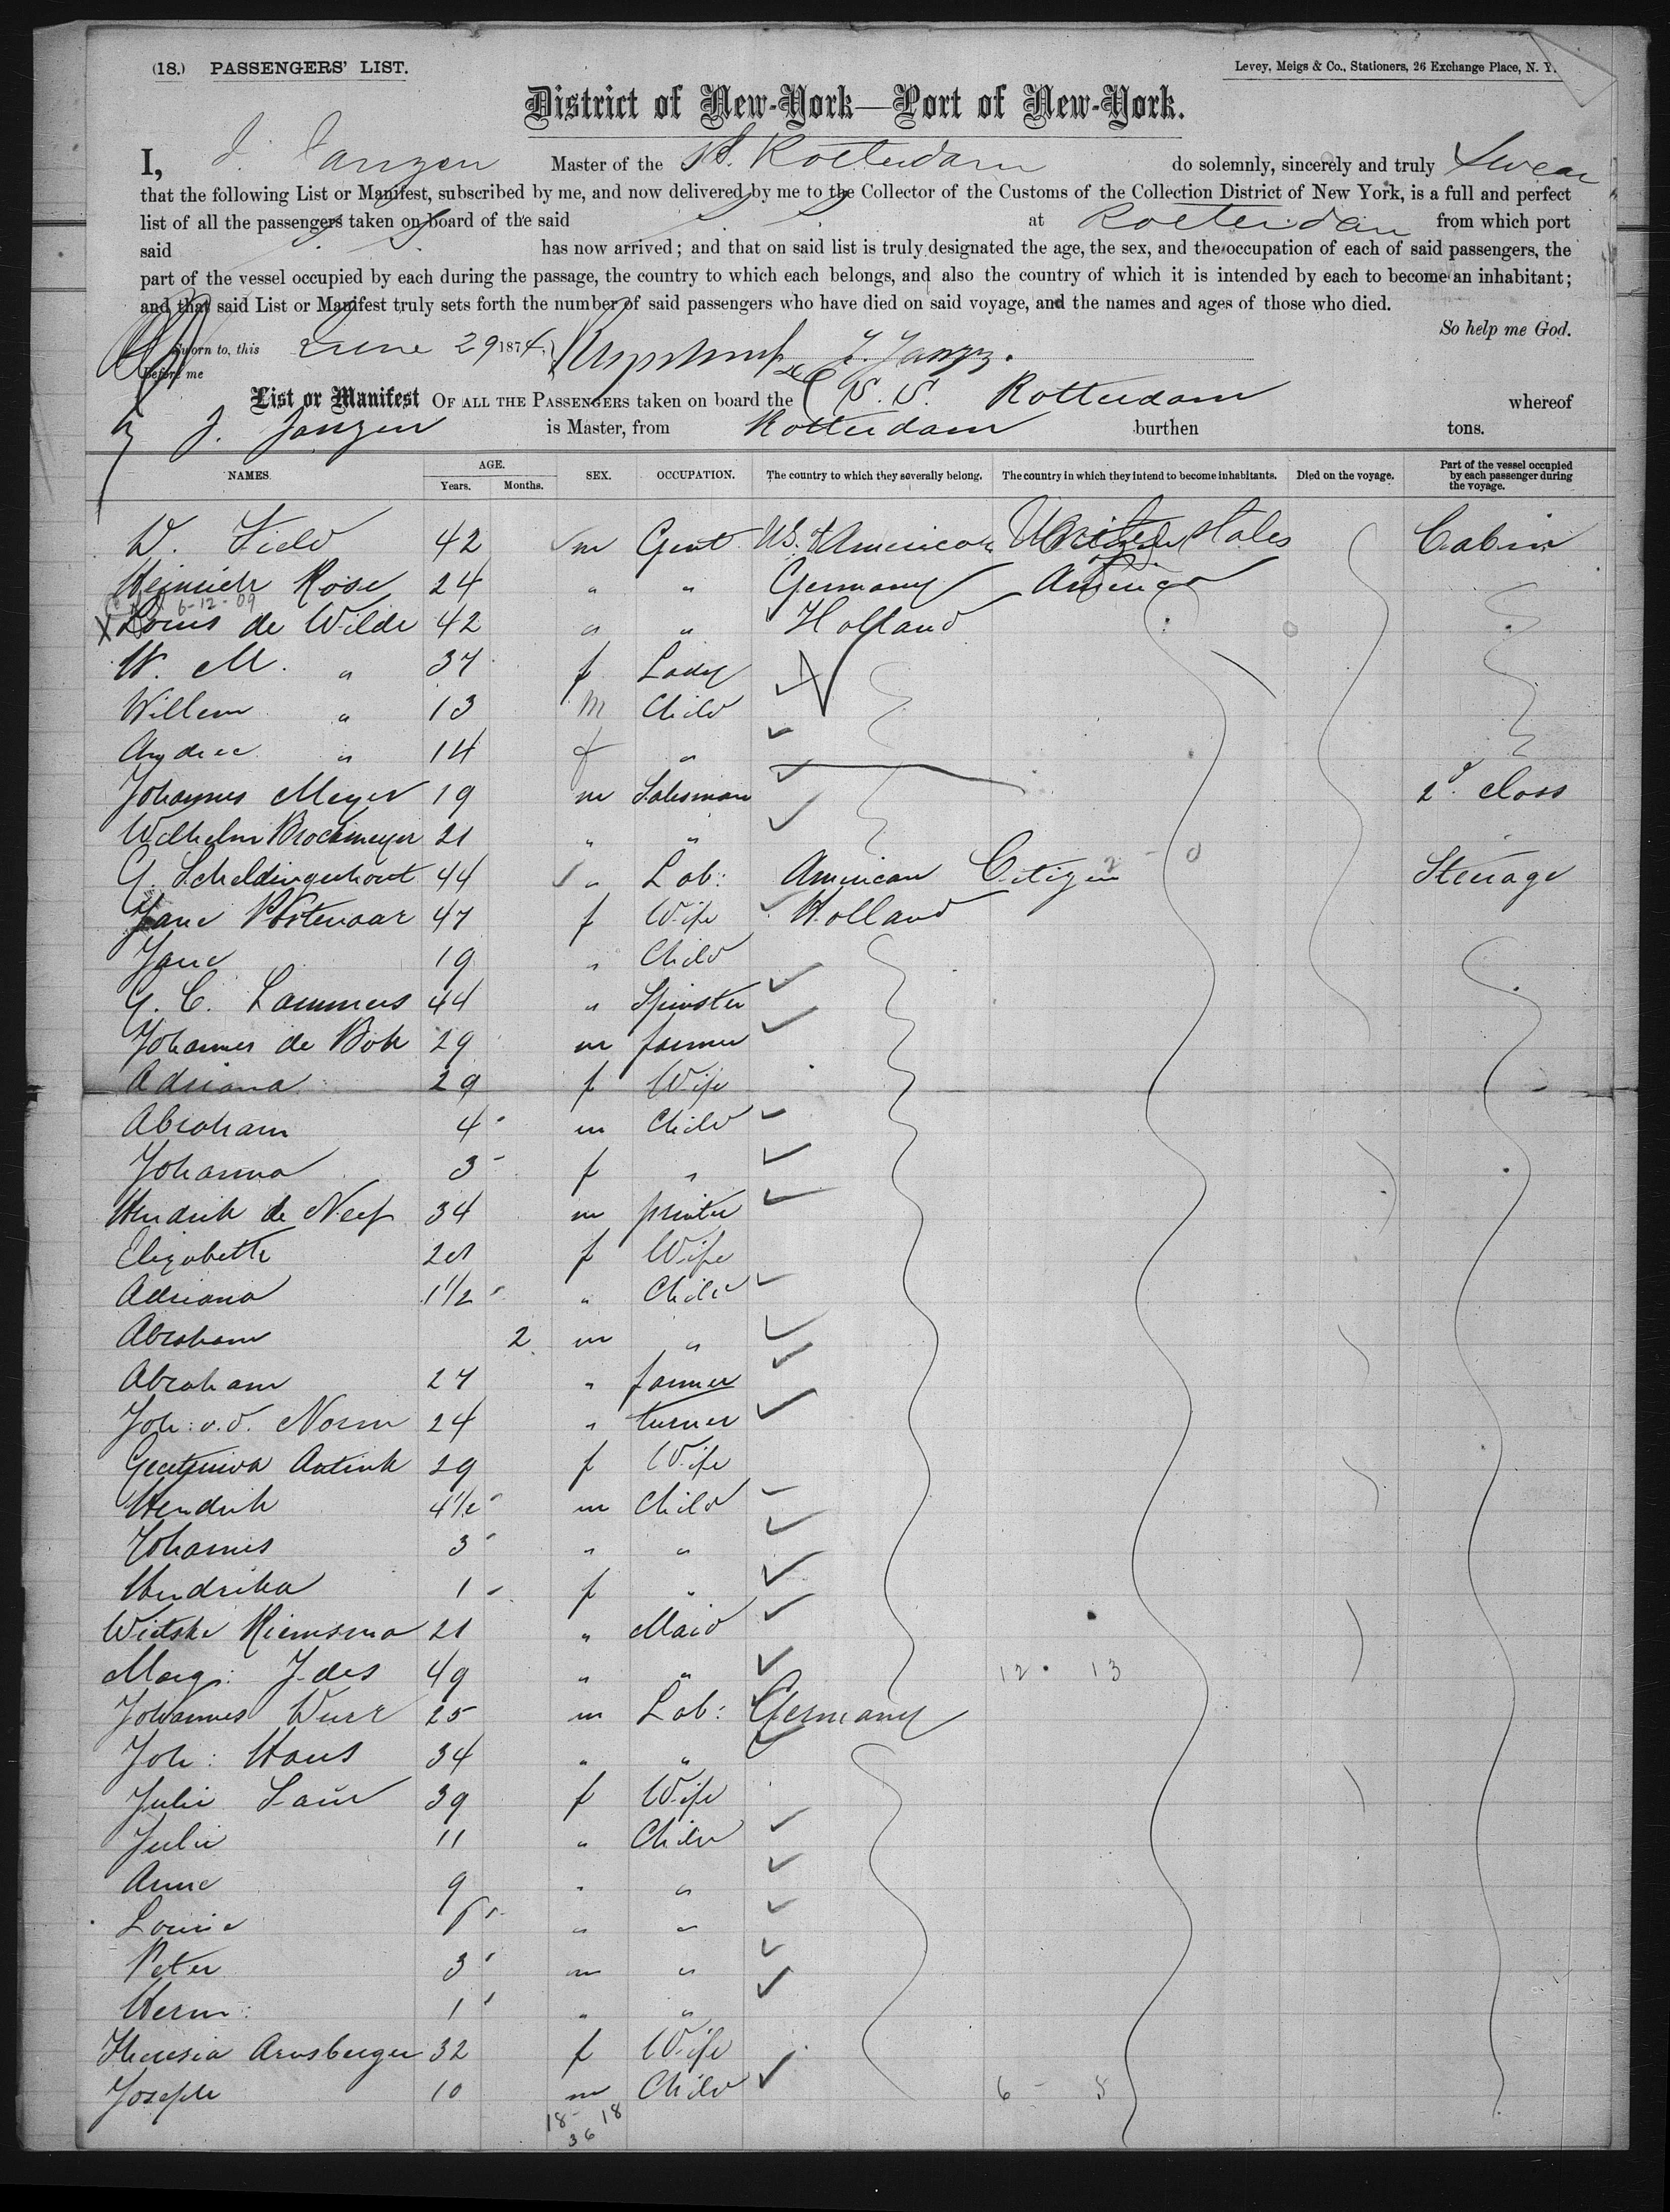 (18.) PASSENGERS' LIST.
Levey, Meigs & Co., Stationers, 26 Exchange Place, N. Y.
District of New-York—Port of New-York.
I, J. Janzen Master of the SS. Rotterdam do solemnly, sincerely and truly Swear
that the following List or Manifest, subscribed by me, and now delivered by me to the Collector of the Customs of the Collection District of New York, is a full and perfect
list of all the passengers taken on board of the said at Rotterdam from which port
said has now arrived; and that on said list is truly designated the age, the sex, and the occupation of each of said passengers, the
part of the vessel occupied by each during the passage, the country to which each belongs, and also the country of which it is intended by each to become an inhabitant;
and that said List or Manifest truly sets forth the number of said passengers who have died on said voyage, and the names and ages of those who died.
So help me God.
Sworn to, this June 29 1874,
Before me
List or Manifest OF ALL THE PASSENGERS taken on board the S. S. Rotterdam whereof
J. Janzen is Master, from Rotterdam burthen tons.
NAMES. AGE. Years. Months. SEX. OCCUPATION. The country to which they severally belong. The country in which they intend to become inhabitants. Died on the voyage. Part of the vessel occupied by each passenger during the voyage.
W. Field 42 m Gent U.S. of America United States Cabin
Heinrich Rose 24 " " Germany America
6-12-09
X Louis de Wilde 42 " " Holland
W. M. " 37 f Lady
Willem " 13 m Child
" 14 f "
Johannes Meyer 19 m Salesman 2d. Class
Wilhelm Brockmeyer 21 " "
G. Scheldingerhout 44 " Lab: American Citizen 2 - 0 Steerage
Jane Postenaar 47 f Wife Holland
Jane 19 " Child
G. C. Lammers 44 " Spinster
Johannes de Bok 29 m farmer
Adriana 29 f Wife
Abraham 4 m Child
Johanna 3 f "
Hendrik de Neef 34 m printer
Elizabeth f Wife
Adriana 1 1/2 " Child
Abraham 2 m "
Abraham 27 " farmer
Joh: v. d. Norm 24 " turner
29 f Wife
Hendrik 4 1/2 m Child
Johannes 3 " "
Hendrika 1 f "
Wietske Riemsma 21 " Maid
Marg: Jdes 49 " " 12 - 13
Johannes Wurr 25 m Lab: Germany
Joh: Haus 34 " "
Julie Laur 39 f Wife
Julie 11 " Child
Anna 9 " "
Louise " "
Peter 3 m "
Herm: 1 " "
Theresia Arnsberger 32 f Wife
Joseph 10 m Child 6 - 8
18 - 18
36